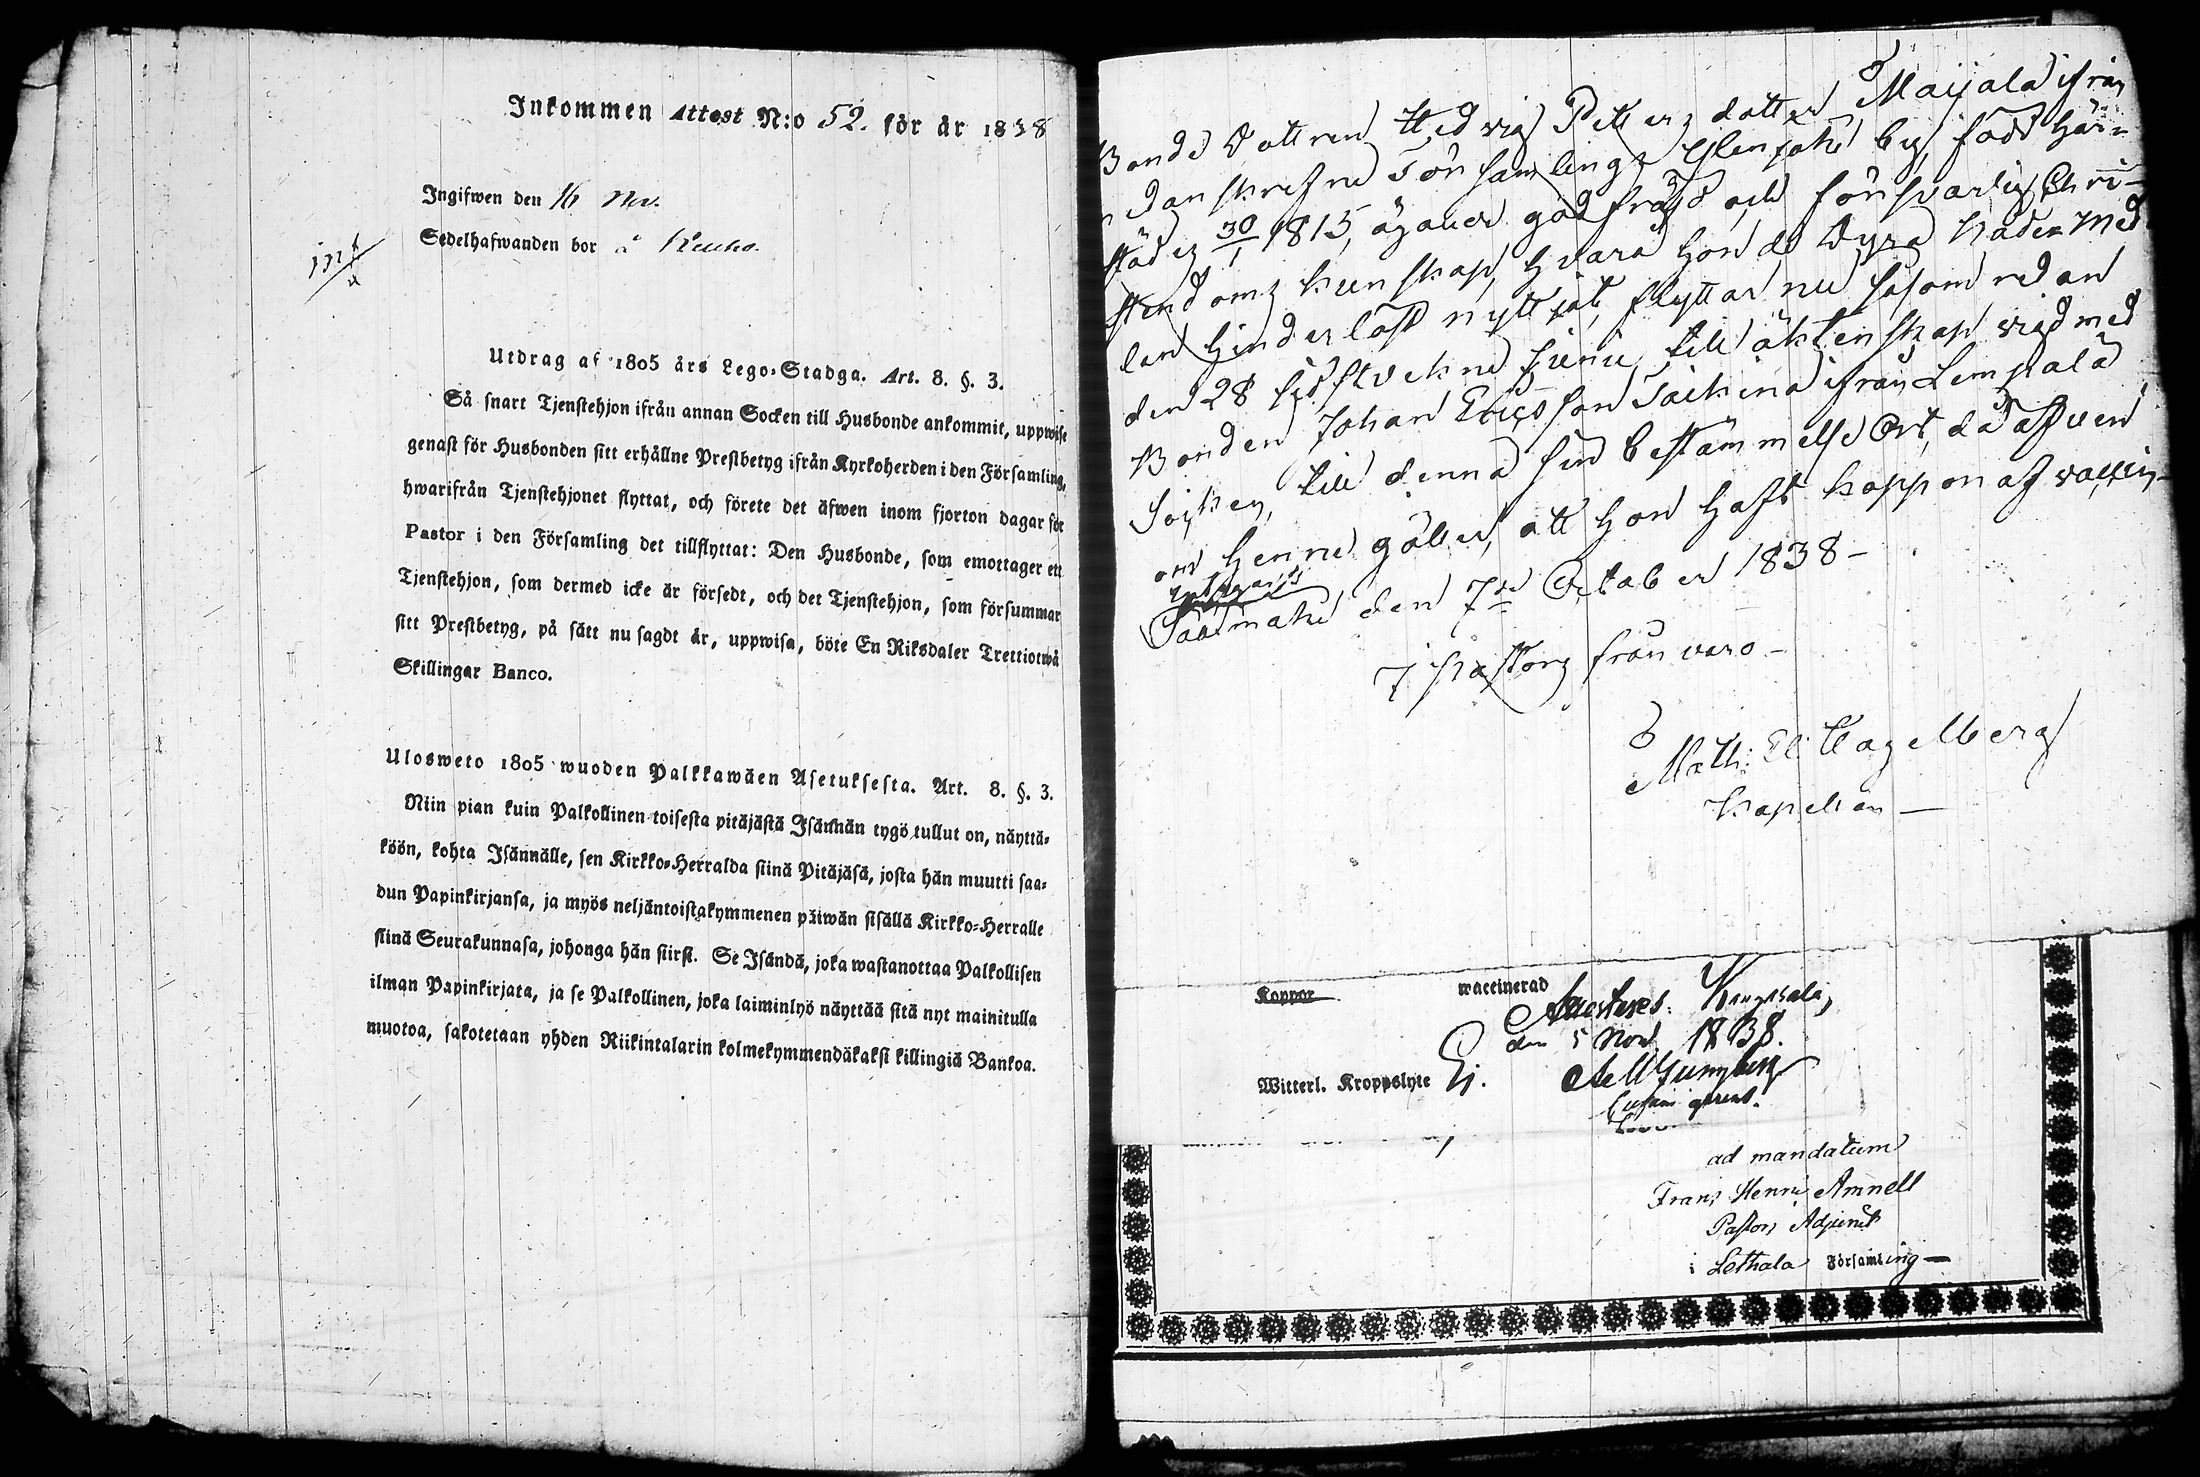 Inkommen Attest N:o 52. för år 1838
Ingifwen den 16 Nov.
Sedelhafwanden bor å
int
Utdrag af 1805 års Lego-Stadga. Art. 8. §. 3.
Så snart Tjenstehjon ifrån annan Socken till Husbonde ankommit, uppwise
genast för Husbonden sitt erhållne Prestbetyg ifrån Kyrkoherden i den Församling,
hwarifrån Tjenstehjonet flyttat, och förete det äfwen inom fjorton dagar för
Pastor i den Församling det tillflyttat: Den Husbonde, som emottager ett
Tjenstehjon, som dermed icke är försedt, och det Tjenstehjon, som försummar
sitt Prestbetyg, på sätt nu sagdt är, uppwisa, böte En Riksdaler Trettiotwå
Skillingar Banco.
Ulosweto 1805 wuoden Palkkawäen Asetuksesta. Art. 8. §. 3.
Niin pian kuin Palkollinen toisesta pitäjästä Isännän tygö tullut on, näyttä-
köön, kohta Isännälle, sen Kirkko-Herralda siinä Pitäjäsä, josta hän muutti saa-
dun Papinkirjansa, ja myös neljäntoistakymmenen päiwän sisällä Kirkko-Herralle
siinä Seurakunnasa, johonga hän siirsi. Se Isändä, joka wastanottaa Palkollisen
ilman Papinkirjata, ja se Palkollinen, joka laiminlyö näyttää sitä nyt mainitulla
muotoa, sakotetaan yhden Riikintalarin kolmekymmendäkaksi killingiä Bankoa.
Bonde Dottren Hedvig Petters dotter Maijala ifrån
nedanskrefne Församlings by, född här-
städes 30/1 1815, äger god frägd och försvarlig Chri-
stendoms kunskap, hvara hon de Dyra Nådermed-
len hinderlöst nyttjat, flyttar nu såsom redan
den 28 sidstvekne Junii till äktenskap vigd med
Bonden Johan Ericsson ifrån Lempälä
Socken, till denna sin bestämmelse Ort, då äfven
om henne gäller, att hon haft koppor af
Saarmaki den 7de October 1838 –
I Pastors frånvaro –
Math: El: Hagelberg
Kapellan —
Koppor
waccinerad
Attesteres. Kangasala,
den 5 Nov. 1838.
Witterl. Kroppslyte Ej.
ad mandatum
Frans Henric Amnell
Pastors Adjunct
i Lethala Församling —